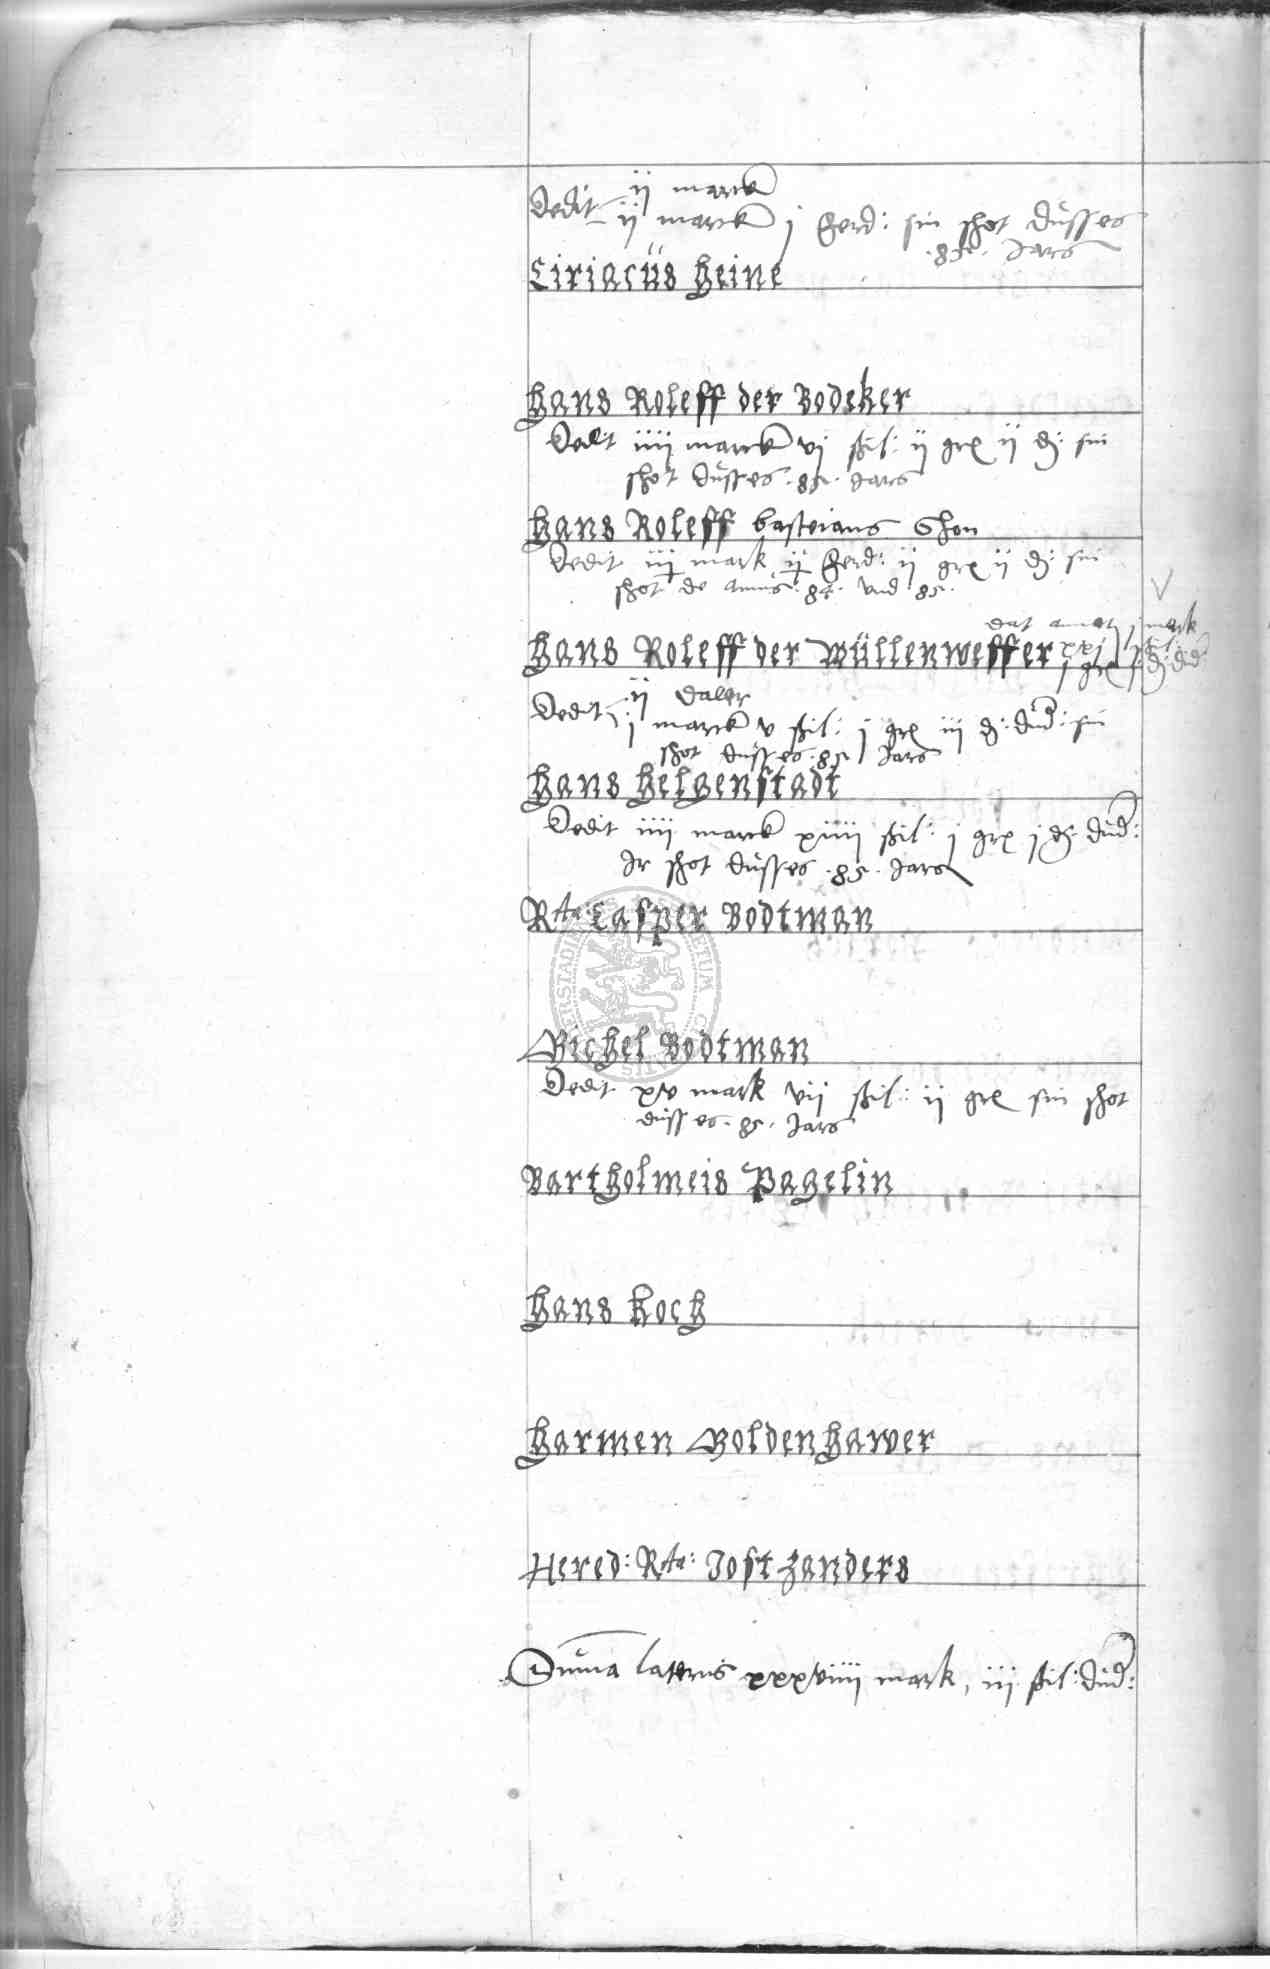 ij marck
Dedit ij marck j ferd: sin shot düsses
.85. Jars
Ciriacüs Heine
Hans Roleff der Bodeker
Dedt iiij marck vj ßil: ij grl ij d: sin
shot düsses .85. Jars
Hans Roleff bastians Shon
Dedit iij mark ij ferd: ij grl ij d: sin
shot de annis .84. vnd 85.
dat j mark
Hans Roleff der Wüllenweffer xxj ßil:
j grl j d: dūd
ij daler
Dedit j marck v ßil: j grl iij d: dūd: sin
shot düsses .85. Jars
Hans Helgenstadt
Dedit iiij marck xiiij ßil: j grl j d: dūd:
Jr shot düsses .85. Jars
Rta: Casper Bodtman
Michel Bodtman
Dedit xv mark vij ßil: ij grl sin shot
düsses .85. Jars
Bartholmeis Pagelin
Hans Koch
Harmen Moldenhawer
Hered: Rta: Jost Zanders
Suma lateris xxxviiij mark, iij ßil: dūd: